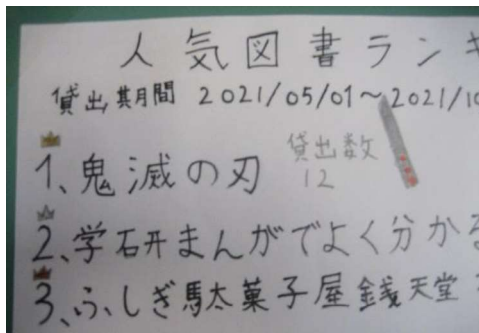 人気図書ランキ
貸出期間 2021/05/01～2021/10
1、鬼滅の刃
貸出数
12
2、学研まんがでよく分かる
3、ふしぎ駄菓子屋銭天堂